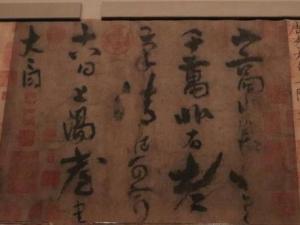 山高水長物象
千萬非有老
筆清壯可窮
十八日上陽臺書
太白